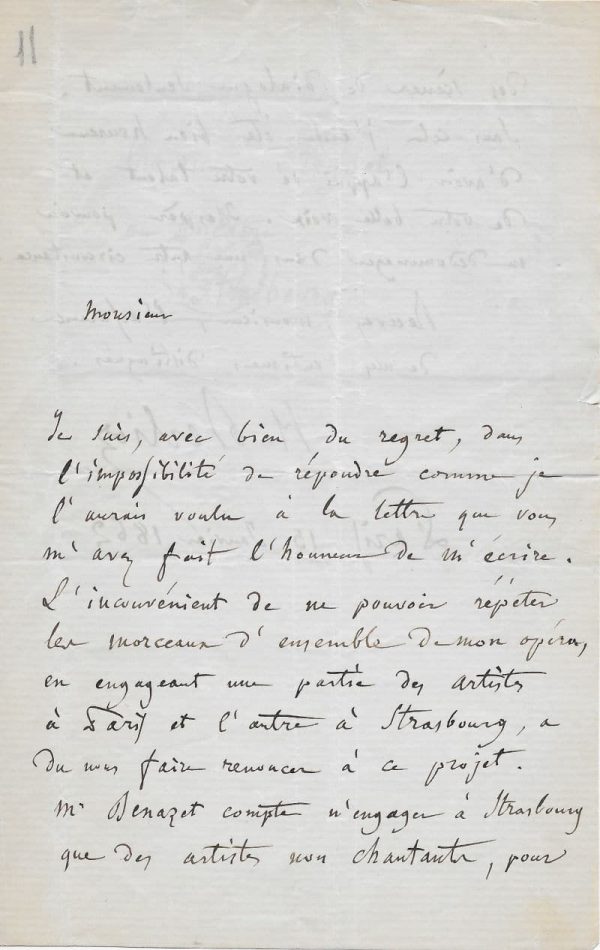 11
Monsieur
Je suis, avec bien du regret, dans
l'impossibilité de répondre comme je
l'aurais voulu à la lettre que vous
m'avez fait l'honneur de m'écrire.
L'inconvénient de ne pouvoir répéter
les morceaux d'ensemble de mon opéra,
en engageant une partie des artistes
à Paris et l'autre à Strasbourg, a
du nous faire renoncer à ce projet.
Mr Benazet compte n'engager à Strasbourg
que des artistes non chantants, pour